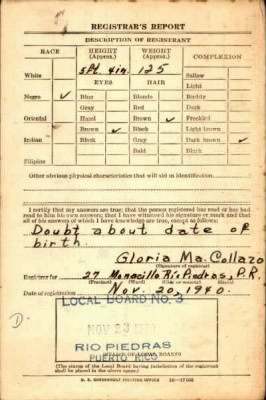 REGISTRAR'S REPORT
DESCRIPTION OF REGISTRANT
RACE HEIGHT (Approx.) WEIGHT (Approx.) COMPLEXION
White 5ft. 4in. 125 Sallow
EYES HAIR Light
Negro ✓ Blue Blonde Ruddy
Gray Red Dark
Oriental Hazel Brown ✓ Freckled
Brown ✓ Black Light brown
Indian Black Gray Dark brown ✓
Bald Black
Filipino
Other obvious physical characteristics that will aid in identification
I certify that my answers are true; that the person registered has read or has had
read to him his own answers; that I have witnessed his signature or mark and that
all of his answers of which I have knowledge are true, except as follows:
Doubt about date of
birth.
Gloria Ma. Collazo
(Signature of registrar)
Registrar for 27 Monacillo Rio Piedras, P.R.
(Precinct) (Ward) (City or county) (State)
Date of registration Nov. 20, 1940.
LOCAL BOARD No. 3
NOV 23
RIO PIEDRAS
PUERTO RICO
(STAMP OF LOCAL BOARD)
(The stamp of the Local Board having jurisdiction of the registrant
shall be placed in the above space.)
U. S. GOVERNMENT PRINTING OFFICE 16—17105